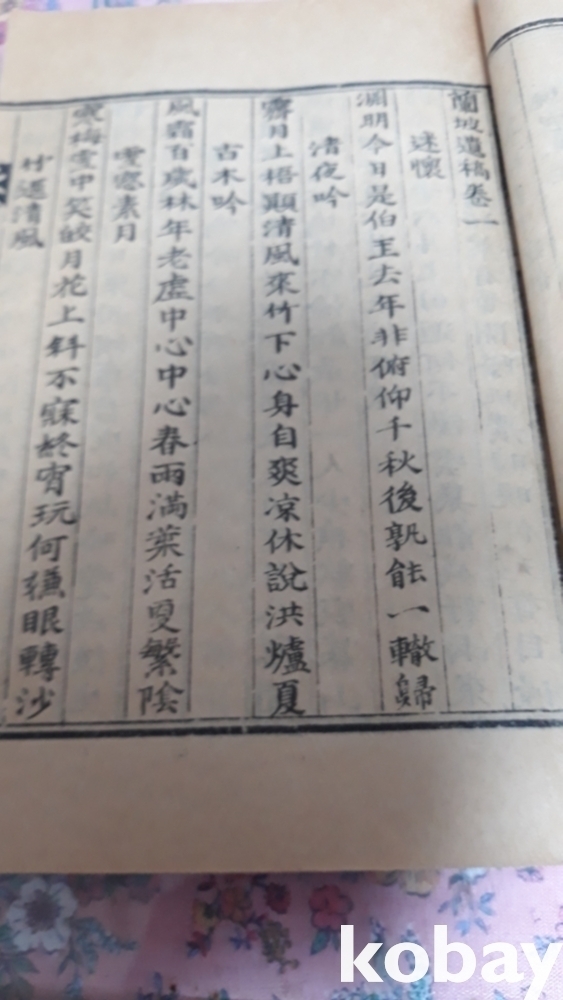 蘭坡遺稿卷一
述懷
淵明今日是伯玉去年非俯仰千秋後孰能一轍歸
清夜吟
霽月上梧顚清風來竹下心身自爽凉休說洪爐夏
古木吟
風霜百歲林年老虛中心中心春雨滿葉活更繁陰
雪窓素月
寒梅雪中笑皎月花上斜不寐終宵玩何嫌眼轉沙
竹邊清風
kobay